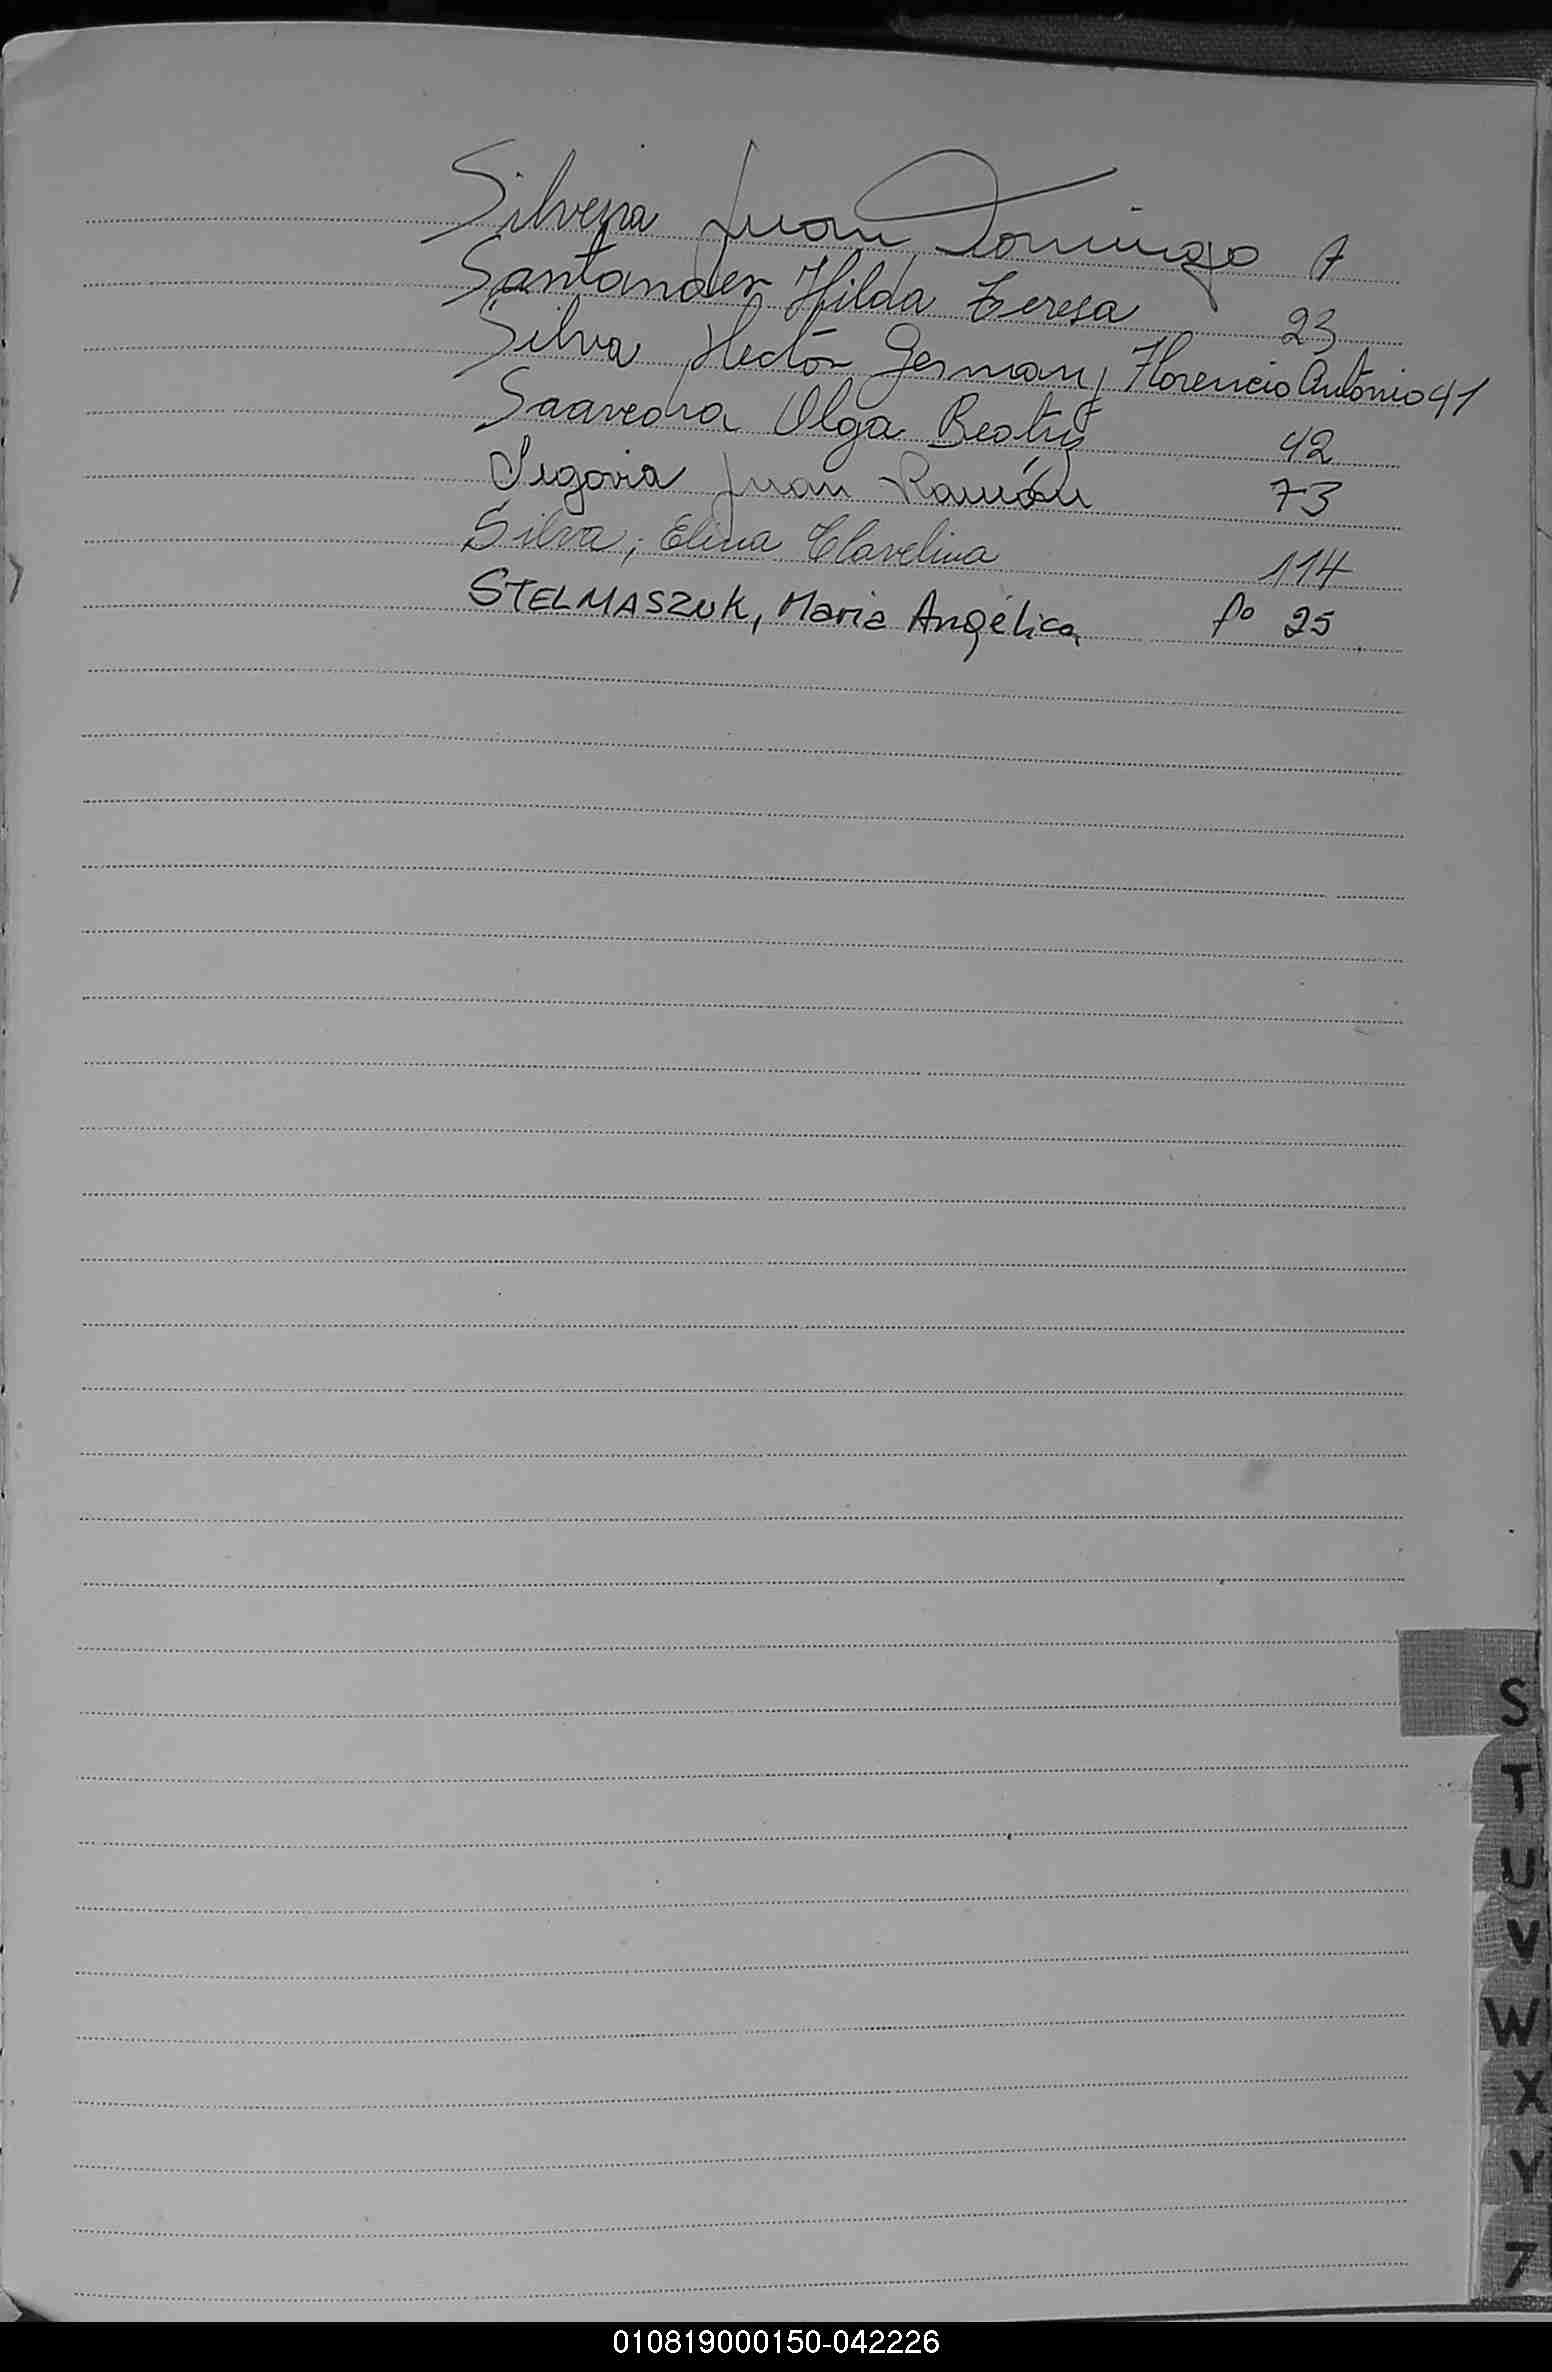 Silveira Juan Domingo 7
Santander Hilda Teresa 23
Silva Hector German y Florencio Antonio 41
Saavedra Olga Beatriz 42
Segovia Juan Ramón 73
Silva, Elina Clavelina 114
STELMASZUK, Maria Angélica fo 25
S
T
U
V
W
X
Y
Z
010819000150-042226